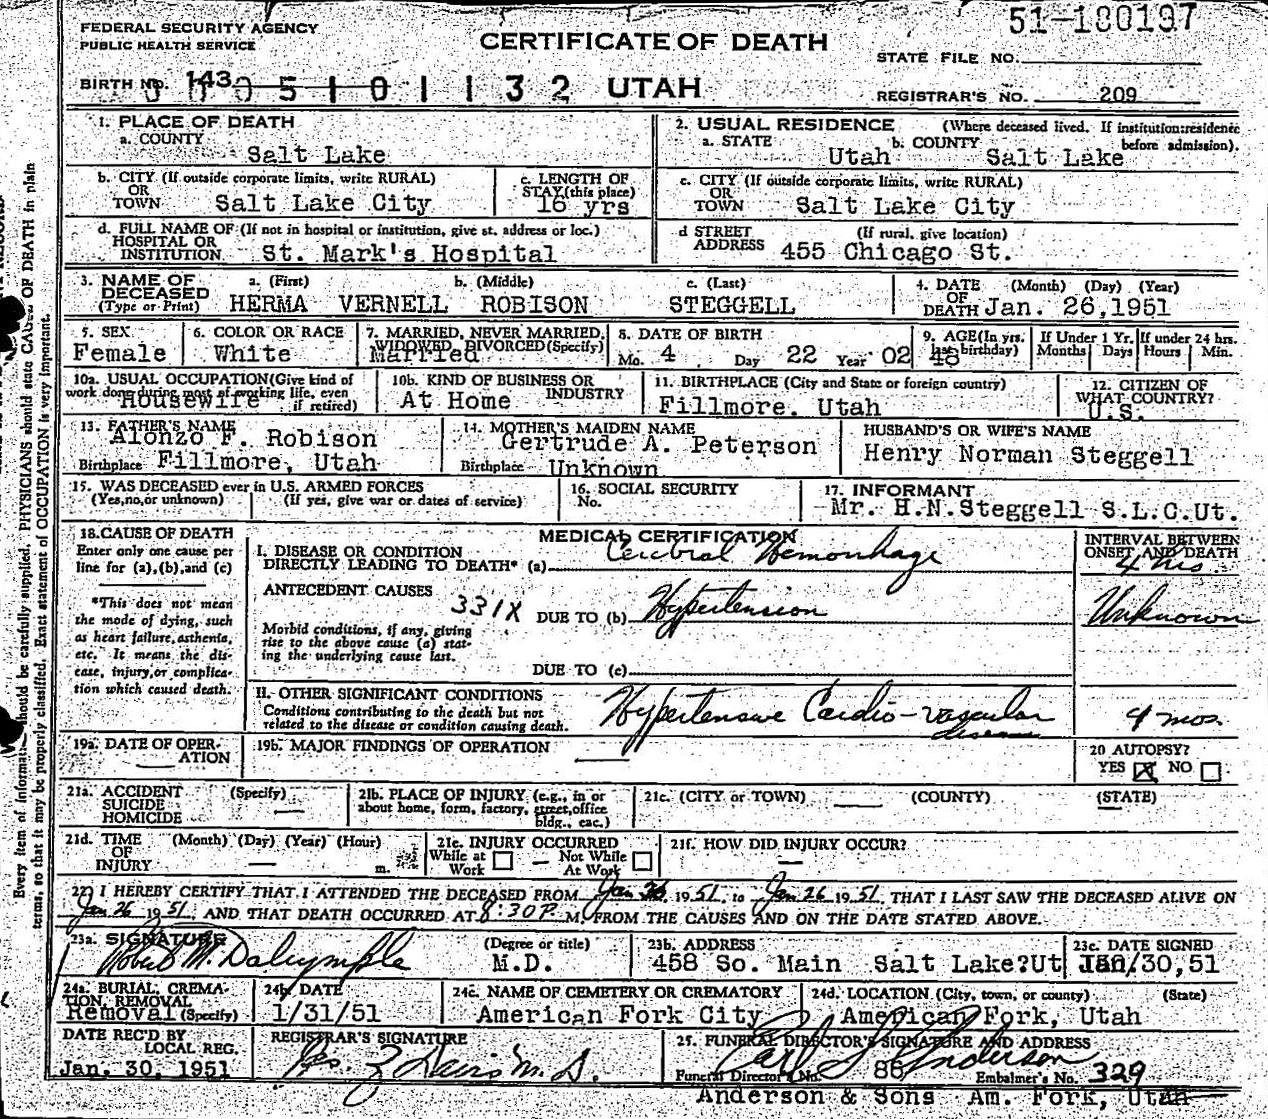 51-180197
FEDERAL SECURITY AGENCY
PUBLIC HEALTH SERVICE
CERTIFICATE OF DEATH
STATE FILE NO.
BIRTH NO. 143 05101132 UTAH
REGISTRAR'S NO. 209
1. PLACE OF DEATH
a. COUNTY
Salt Lake
2. USUAL RESIDENCE (Where deceased lived. If institution: residence before admission).
a. STATE Utah b. COUNTY Salt Lake
b. CITY (If outside corporate limits, write RURAL) OR TOWN Salt Lake City
c. LENGTH OF STAY (this place) 16 yrs
c. CITY (If outside corporate limits, write RURAL) OR TOWN Salt Lake City
d. FULL NAME OF (If not in hospital or institution, give st. address or loc.) HOSPITAL OR INSTITUTION St. Mark's Hospital
d STREET ADDRESS (If rural, give location) 455 Chicago St.
3. NAME OF DECEASED (Type or Print) a. (First) b. (Middle) c. (Last)
HERMA VERNELL ROBISON STEGGELL
4. DATE OF DEATH (Month) (Day) (Year) Jan. 26,1951
5. SEX Female
6. COLOR OR RACE White
7. MARRIED, NEVER MARRIED, WIDOWED, DIVORCED (Specify) Married
8. DATE OF BIRTH Mo. 4 Day 22 Year 02
9. AGE (In yrs. last birthday) 48
If Under 1 Yr. Months Days
If under 24 hrs. Hours Min.
10a. USUAL OCCUPATION (Give kind of work done during most of working life, even if retired) Housewife
10b. KIND OF BUSINESS OR INDUSTRY At Home
11. BIRTHPLACE (City and State or foreign country) Fillmore, Utah
12. CITIZEN OF WHAT COUNTRY? U.S.
13. FATHER'S NAME Alonzo F. Robison
Birthplace Fillmore, Utah
14. MOTHER'S MAIDEN NAME Gertrude A. Peterson
Birthplace Unknown
HUSBAND'S OR WIFE'S NAME
Henry Norman Steggell
15. WAS DECEASED ever in U.S. ARMED FORCES
(Yes, no, or unknown) (If yes, give war or dates of service)
16. SOCIAL SECURITY No.
17. INFORMANT
Mr. H.N.Steggell S.L.C.Ut.
18. CAUSE OF DEATH
Enter only one cause per line for (a), (b), and (c)
*This does not mean the mode of dying, such as heart failure, asthenia, etc. It means the disease, injury, or complication which caused death.
MEDICAL CERTIFICATION
INTERVAL BETWEEN ONSET AND DEATH
I. DISEASE OR CONDITION DIRECTLY LEADING TO DEATH* (a) Cerebral Hemorrhage 4 hrs
ANTECEDENT CAUSES
331X DUE TO (b) Hypertension Unknown
Morbid conditions, if any, giving rise to the above cause (a) stating the underlying cause last.
DUE TO (c)
II. OTHER SIGNIFICANT CONDITIONS
Conditions contributing to the death but not related to the disease or condition causing death.
Hypertensive Cardio-vascular disease 9 mos.
19a. DATE OF OPERATION
19b. MAJOR FINDINGS OF OPERATION
20 AUTOPSY?
YES X NO
21a. ACCIDENT SUICIDE HOMICIDE (Specify)
21b. PLACE OF INJURY (e.g., in or about home, form, factory, street, office bldg., eac.)
21c. (CITY or TOWN) (COUNTY) (STATE)
21d. TIME OF INJURY (Month) (Day) (Year) (Hour) m.
21e. INJURY OCCURRED
While at Work Not While At Work
21f. HOW DID INJURY OCCUR?
22) I HEREBY CERTIFY THAT I ATTENDED THE DECEASED FROM Jan 1951, to Jan 26 1951, THAT I LAST SAW THE DECEASED ALIVE ON
Jan 26 1951, AND THAT DEATH OCCURRED AT 8:30P M., FROM THE CAUSES AND ON THE DATE STATED ABOVE.
23a. SIGNATURE Robert M. Dalrymple (Degree or title) M.D.
23b. ADDRESS
458 So. Main Salt Lake?Ut
23c. DATE SIGNED
Jan/30,51
24a. BURIAL, CREMATION, REMOVAL (Specify) Removal
24b. DATE 1/31/51
24c. NAME OF CEMETERY OR CREMATORY
American Fork City
24d. LOCATION (City, town, or county) (State)
American Fork, Utah
DATE REC'D BY LOCAL REG.
Jan. 30, 1951
REGISTRAR'S SIGNATURE
Davis M.D.
25. FUNERAL DIRECTOR'S SIGNATURE AND ADDRESS
Anderson
Funeral Director's No. 86 Embalmer's No. 329
Anderson & Sons Am. Fork, Utah
Every item of information should be carefully supplied. PHYSICIANS should state CAUSE OF DEATH in plain
terms, so that it may be properly classified. Exact statement of OCCUPATION is very important.